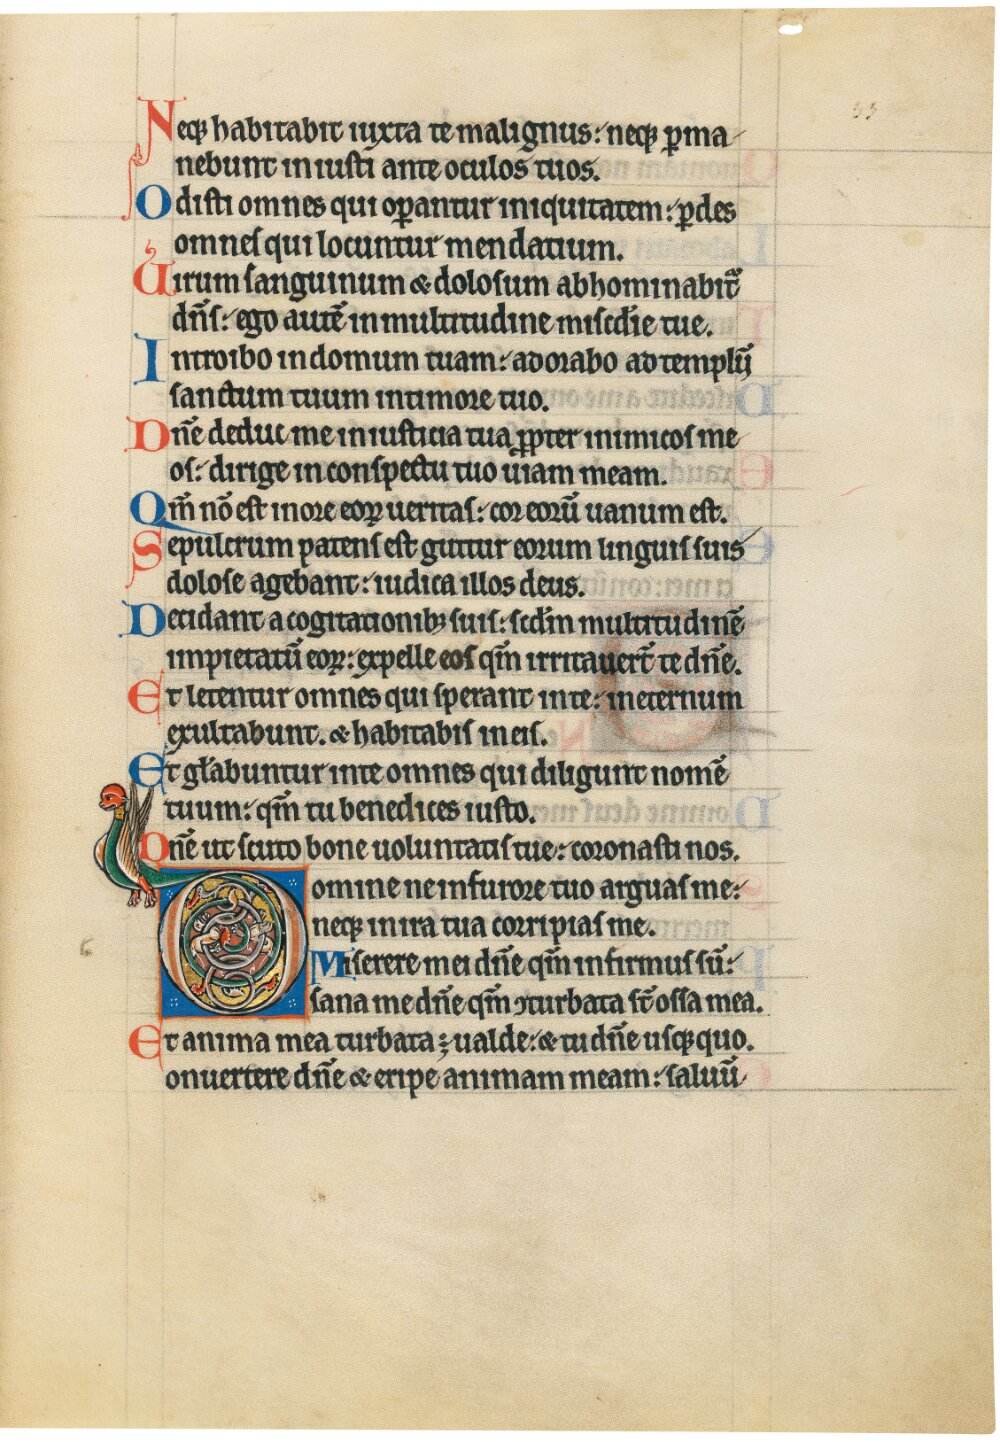 33
Neq; habitabit iuxta te malignus: neq; p̱ma
nebunt iniusti ante oculos tuos.
Odisti omnes qui op̱antur iniquitatem: p̱des
omnes qui locuntur mendatium.
Uirum sanguinum & dolosum abhominabit᷑
dn̄s: ego autē in multitudine mis̄cd̄ie tue.
Introibo in domum tuam: adorabo ad templū
sanctum tuum in timore tuo.
Dn̄e deduc me in iusticia tua p̱pter inimicos me
os: dirige in conspectu tuo uiam meam.
Qm̄ nō est in ore eoꝝ ueritas: cor eorū uanum est.
Sepulcrum patens est guttur eorum linguis suis
dolose agebant: iudica illos deus.
Decidant a cogitationib; suis: scd̄m multitudinē
impietatū eoꝝ: expelle eos qm̄ irritauert̄ te dn̄e.
Et letentur omnes qui sperant in te: in eternum
exultabunt. & habitabis in eis.
Et gl̄abuntur in te omnes qui diligunt nomē
tuum: qm̄ tu benedices iusto.
Dn̄e ut scuto bone uoluntatis tue: coronasti nos.
Domine ne in furore tuo arguas me:
neq; in ira tua corripias me.
6
Miserere mei dn̄e qm̄ infirmus sū:
sana me dn̄e qm̄ ꝯturbata st̄ ossa mea.
Et anima mea turbata ÷ ualde: & tu dn̄e usq; quo.
onuertere dn̄e & eripe animam meam: saluū